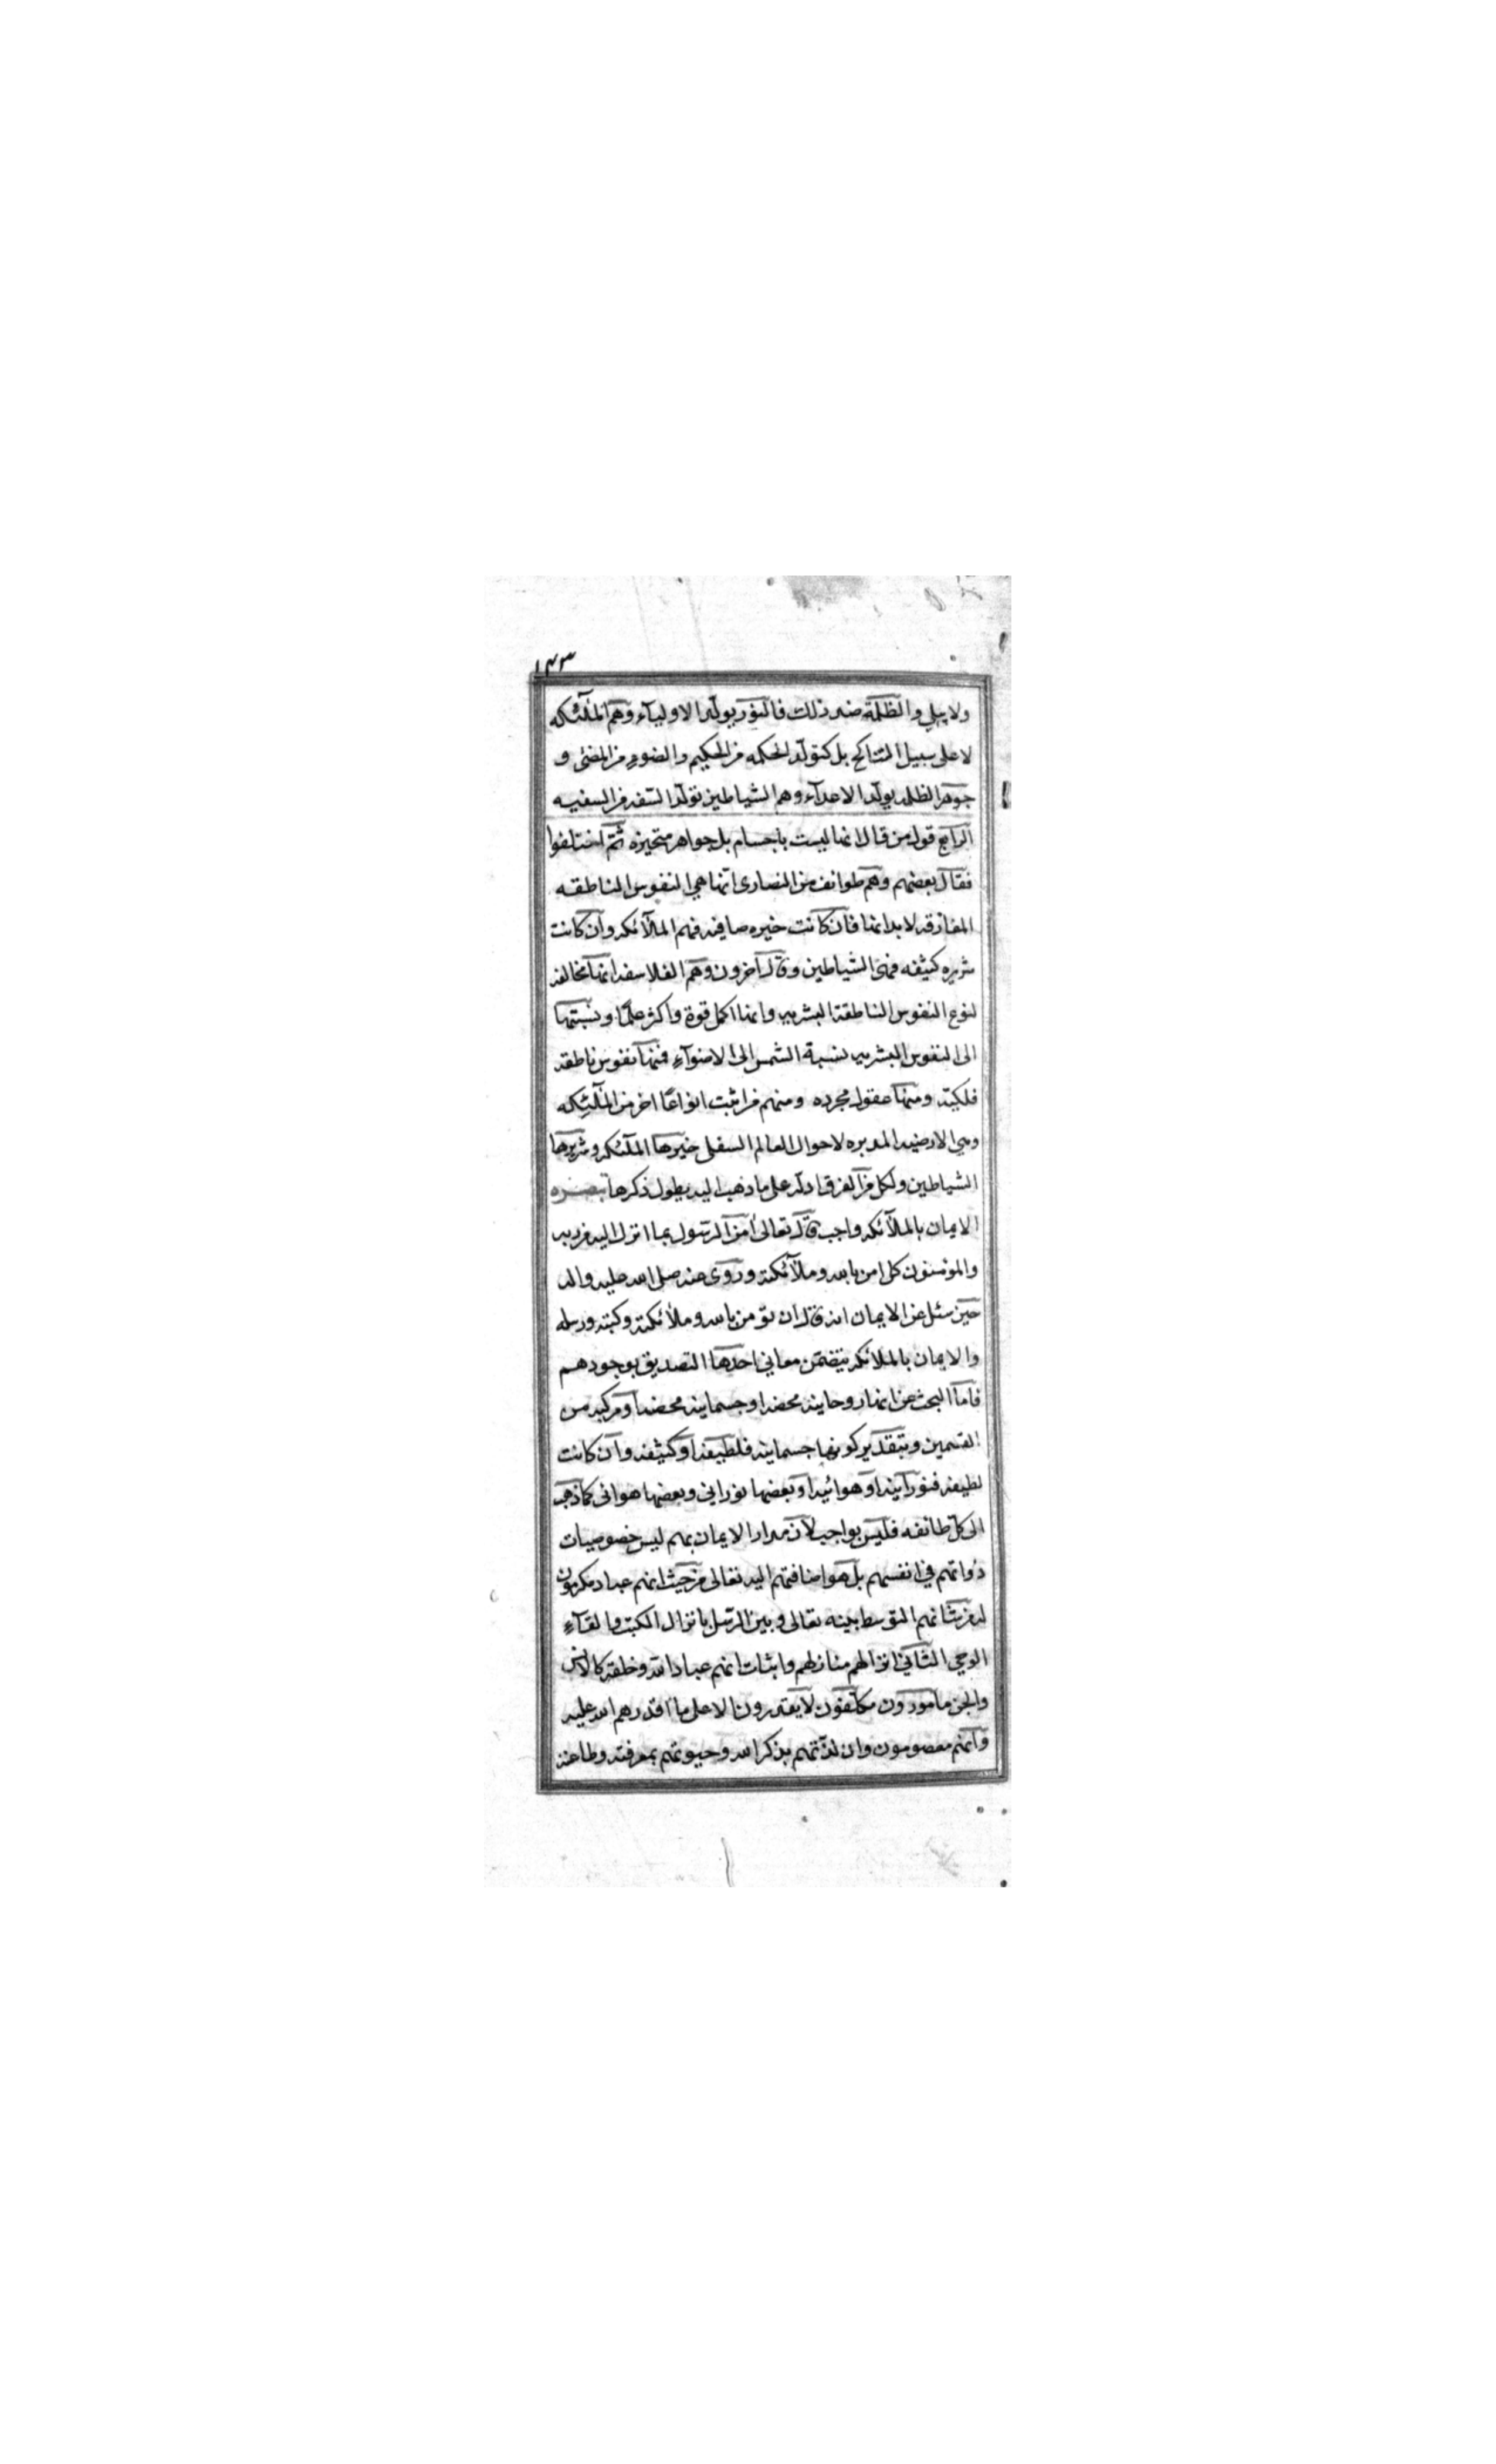 ١٤٣
ولا يبلي والظلمة ضد ذلك فالنور يولد الاولياء وهم الملئكه
لا على سبيل التناكح بل كتولد الحكمه من الحكيم والضوء من المضئ و
جوهر الظلمه يولد الاعداء وهم الشياطين تولد السفه من السفيه
الرابع قول من قال انها ليست باجسام بل جواهر متحيزه ثم اختلفوا
فقال بعضهم وهم طوائف من النصارى انها هي النفوس الناطقه
المفارقه لابدانها فان كانت خيره صافيه فهم الملآئكه وان كانت
شريره كثيفه فهى الشياطين وقال آخرون وهم الفلاسفه انها مخالفه
لنوع النفوس الناطقة البشريه وانها اكمل قوة واكثر علمًا ونسبتها
الى النفوس البشريه نسبة الشمس الى الاضوآء فمنها نفوس ناطقه
فلكيه ومنها عقول مجرده ومنهم من اثبت انواعًا اخر من الملئكه
وهي الارضيه المدبره لاحوال العالم السفلى خيرها الملئكه وشريرها
الشياطين ولكل من الفرق ادله على ما ذهب اليه يطول ذكرها تبصره
الايمان بالملآئكه واجب قال تعالى امن الرسول بما انزل اليه من ربه
والمؤمنون كل امن بالله وملآئكته وروى عنه صلى الله عليه واله
حين سئل عن الايمان انه قال ان تؤمن بالله وملائكته وكتبه ورسله
والايمان بالملائكه يتضمن معاني احدها التصديق بوجودهم
فاما البحث عن انها روحانيه محضه او جسمانيه محضه او مركبه من
القسمين وبتقدير كونها جسمانيه فلطيفه او كثيفه وان كانت
لطيفه فنورانيه او هوائيه او بعضها نوراني وبعضها هوائى كما ذهب
الى كل طائفه فليس بواجب لان مدار الايمان بهم ليس خصوصيات
ذواتهم في انفسهم بل هو اضافتهم اليه تعالى من حيث انهم عباد مكرمون
له من شانهم التوسط بينه تعالى وبين الرسل بانزال الكتب والقآء
الوحي الثاني انزالهم منازلهم واثبات انهم عباد الله وخلقه كالانس
والجن مأمورون مكلفون لا يقدرون الا على ما اقدرهم الله عليه
وانهم معصومون وان لذتهم بذكر الله وحيوتهم بمعرفته وطاعته